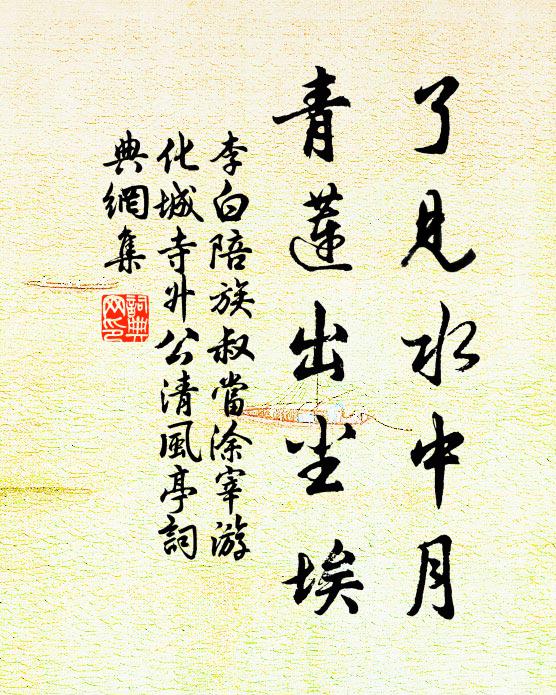 了見水中月
青蓮出尘埃
李白陪族叔當涂宰游
化城寺升公清風亭詞
典網集
詞典
网印